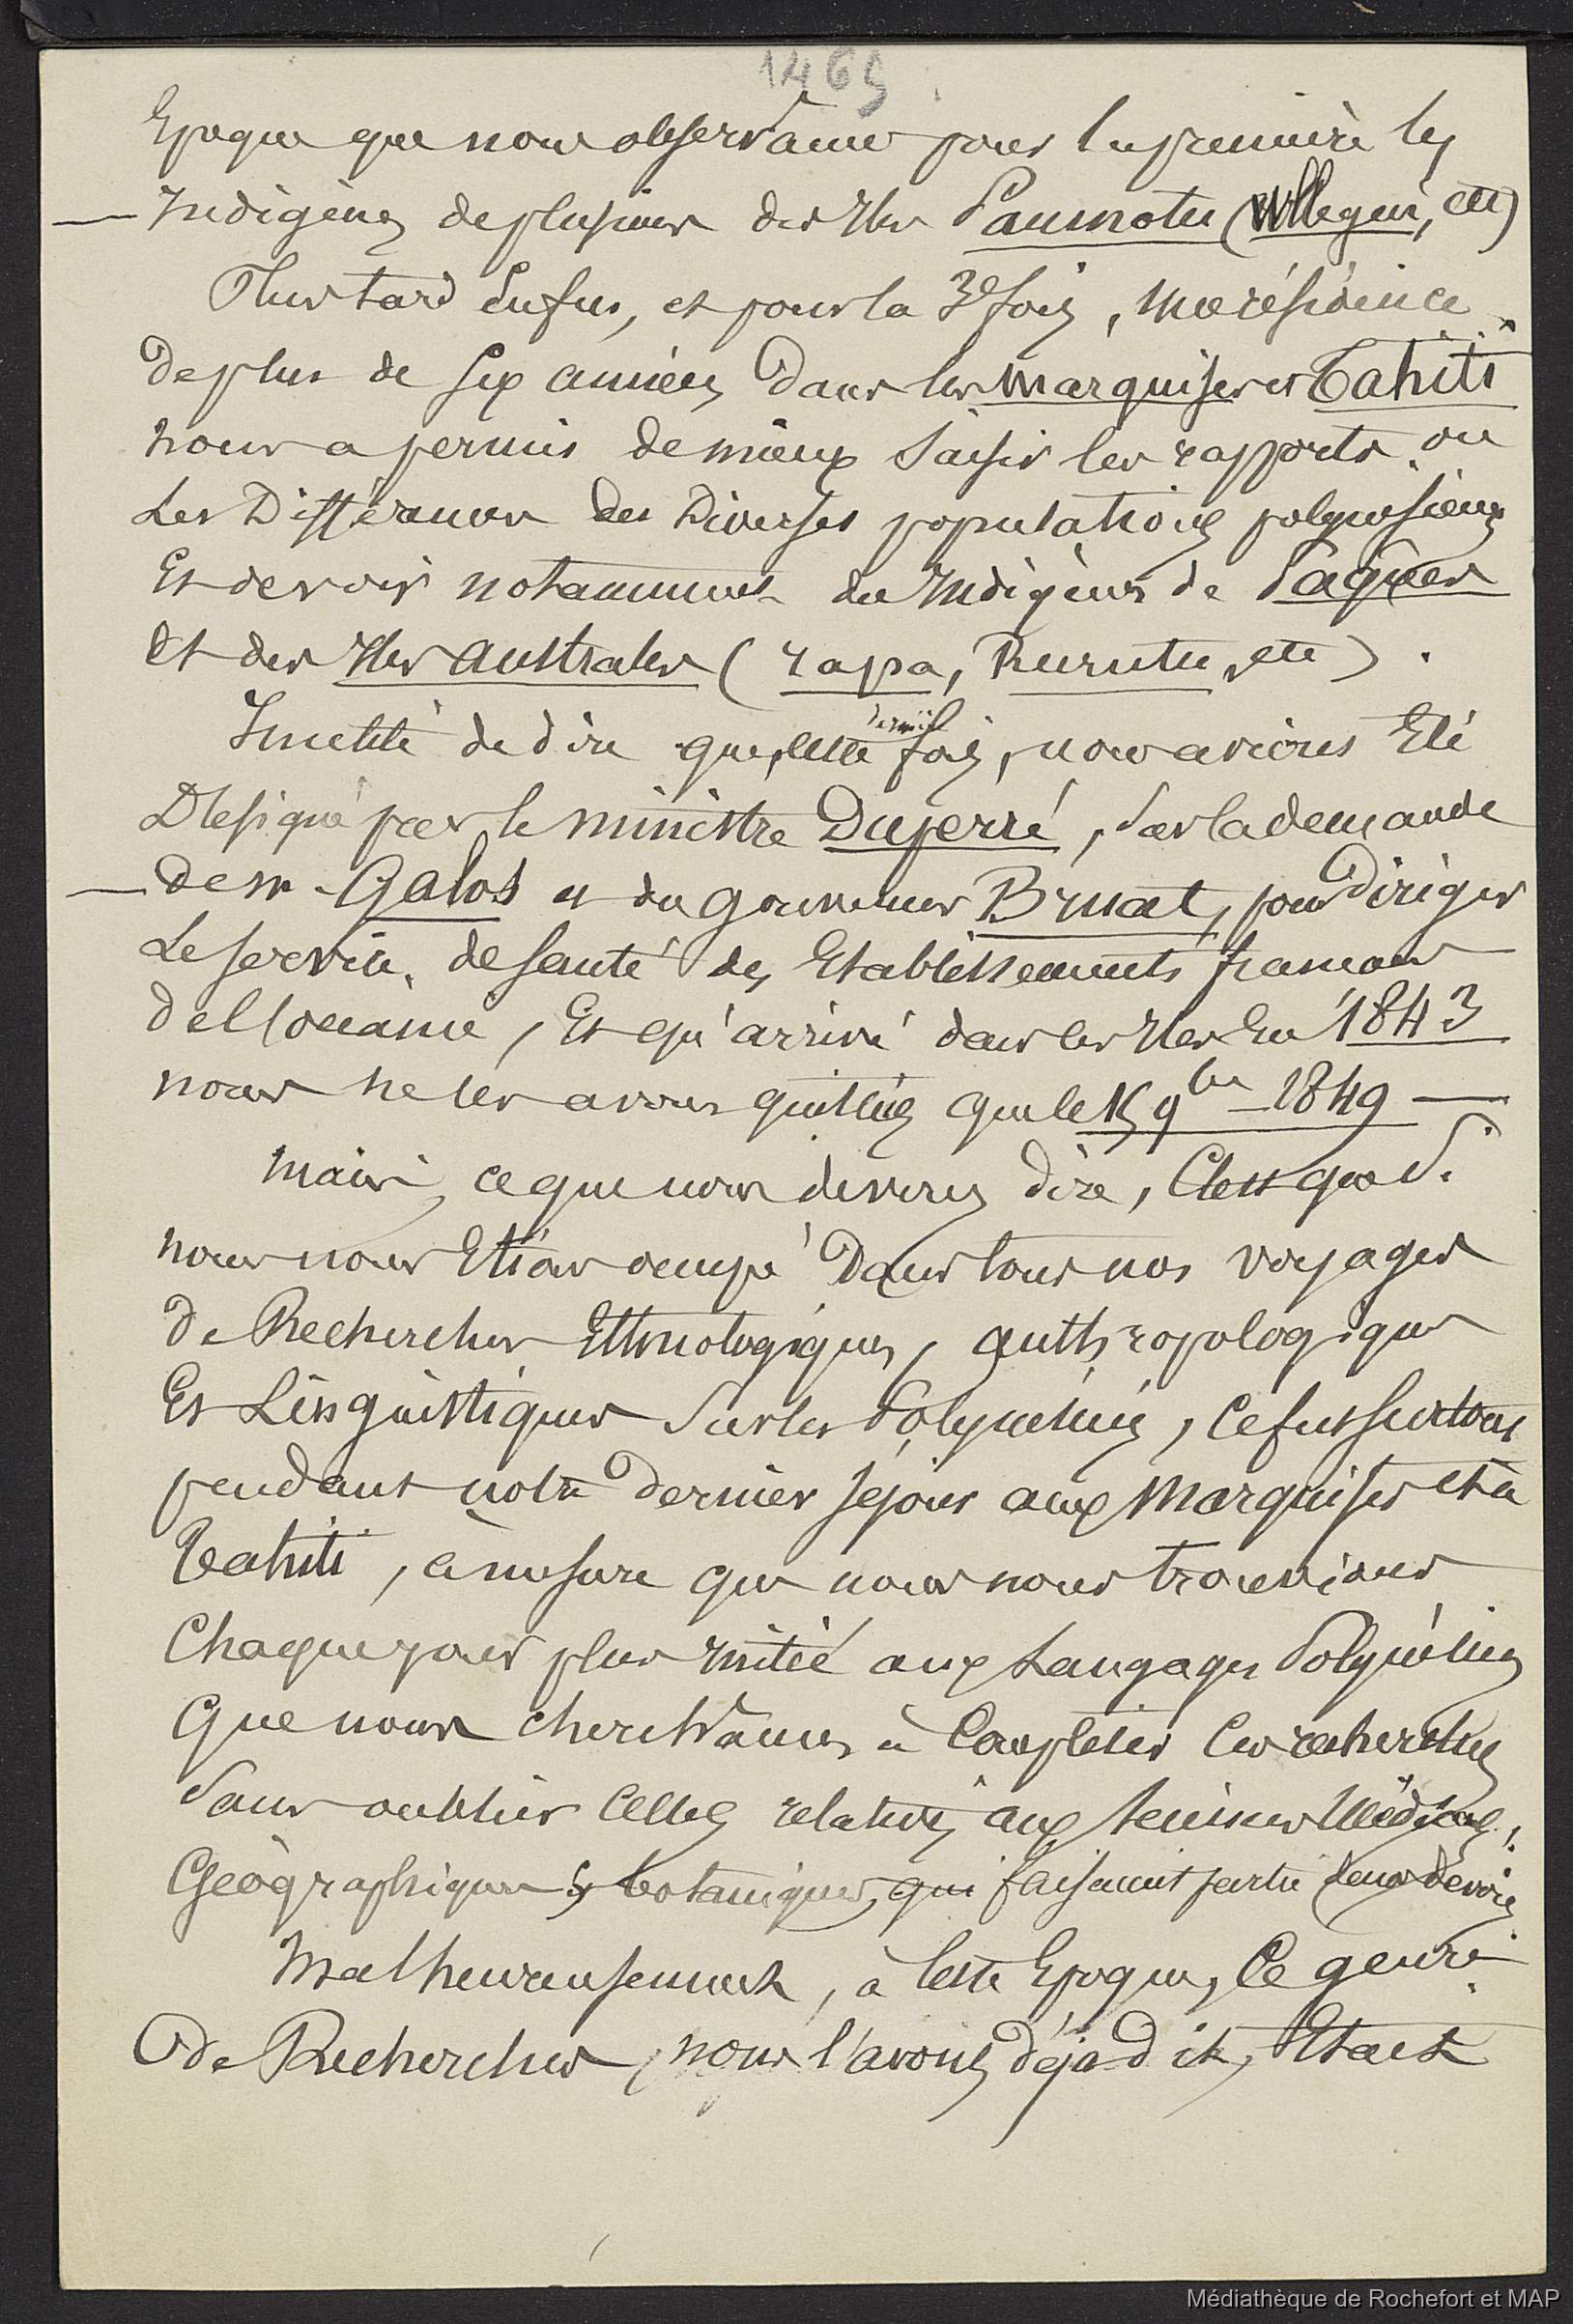 1465
Epoque que nous observâmes pour la première les
— Indigènes de plusieurs des Iles Paumotu (, etc)
Plus tard Enfin, et pour la 3e fois, une résidence
De plus de six années Dans les Marquises et Tahiti
nous a permis de mieux saisir les rapports ou
Les Différences des Diverses populations polynésiennes
Et de voir notamment des Indigènes de Pâques
Et des Iles Australes (rapa, Rurutu, etc).
Inutile de dire que, cette dernière fois, nous avions Eté
Désigné par le ministre Duperré, sur la demande
— de mr Galos et du gouverneur Bruat, pour Diriger
Le service de santé des Etablissements français
de l'océanie, Et qu'arrivé dans les Iles En 1843
nous ne les avons quittées que le 9bre 1849 —
Mais, ce que nous devons dire, C'est que si
nous nous Etions occupé Dans tous nos voyages
De Recherches Ethnologiques, anthropologiques
Et Linguistiques sur les Polynésiens, ce fut surtout
pendant notre Dernier séjour aux Marquises et à
Tahiti, à mesure que nous nous trouvions
Chaque jour plus initié aux Langages Polynésiens
Que nous cherchâmes à Compléter ces recherches
Sans oublier Celles relatives aux sciences Médicales,
Géographiques & botaniques, qui faisaient partie de nos devoirs
Malheureusement, à cette Epoque, Ce genre
De Recherches, nous l'avons déjà dit, Etait
Médiathèque de Rochefort et MAP